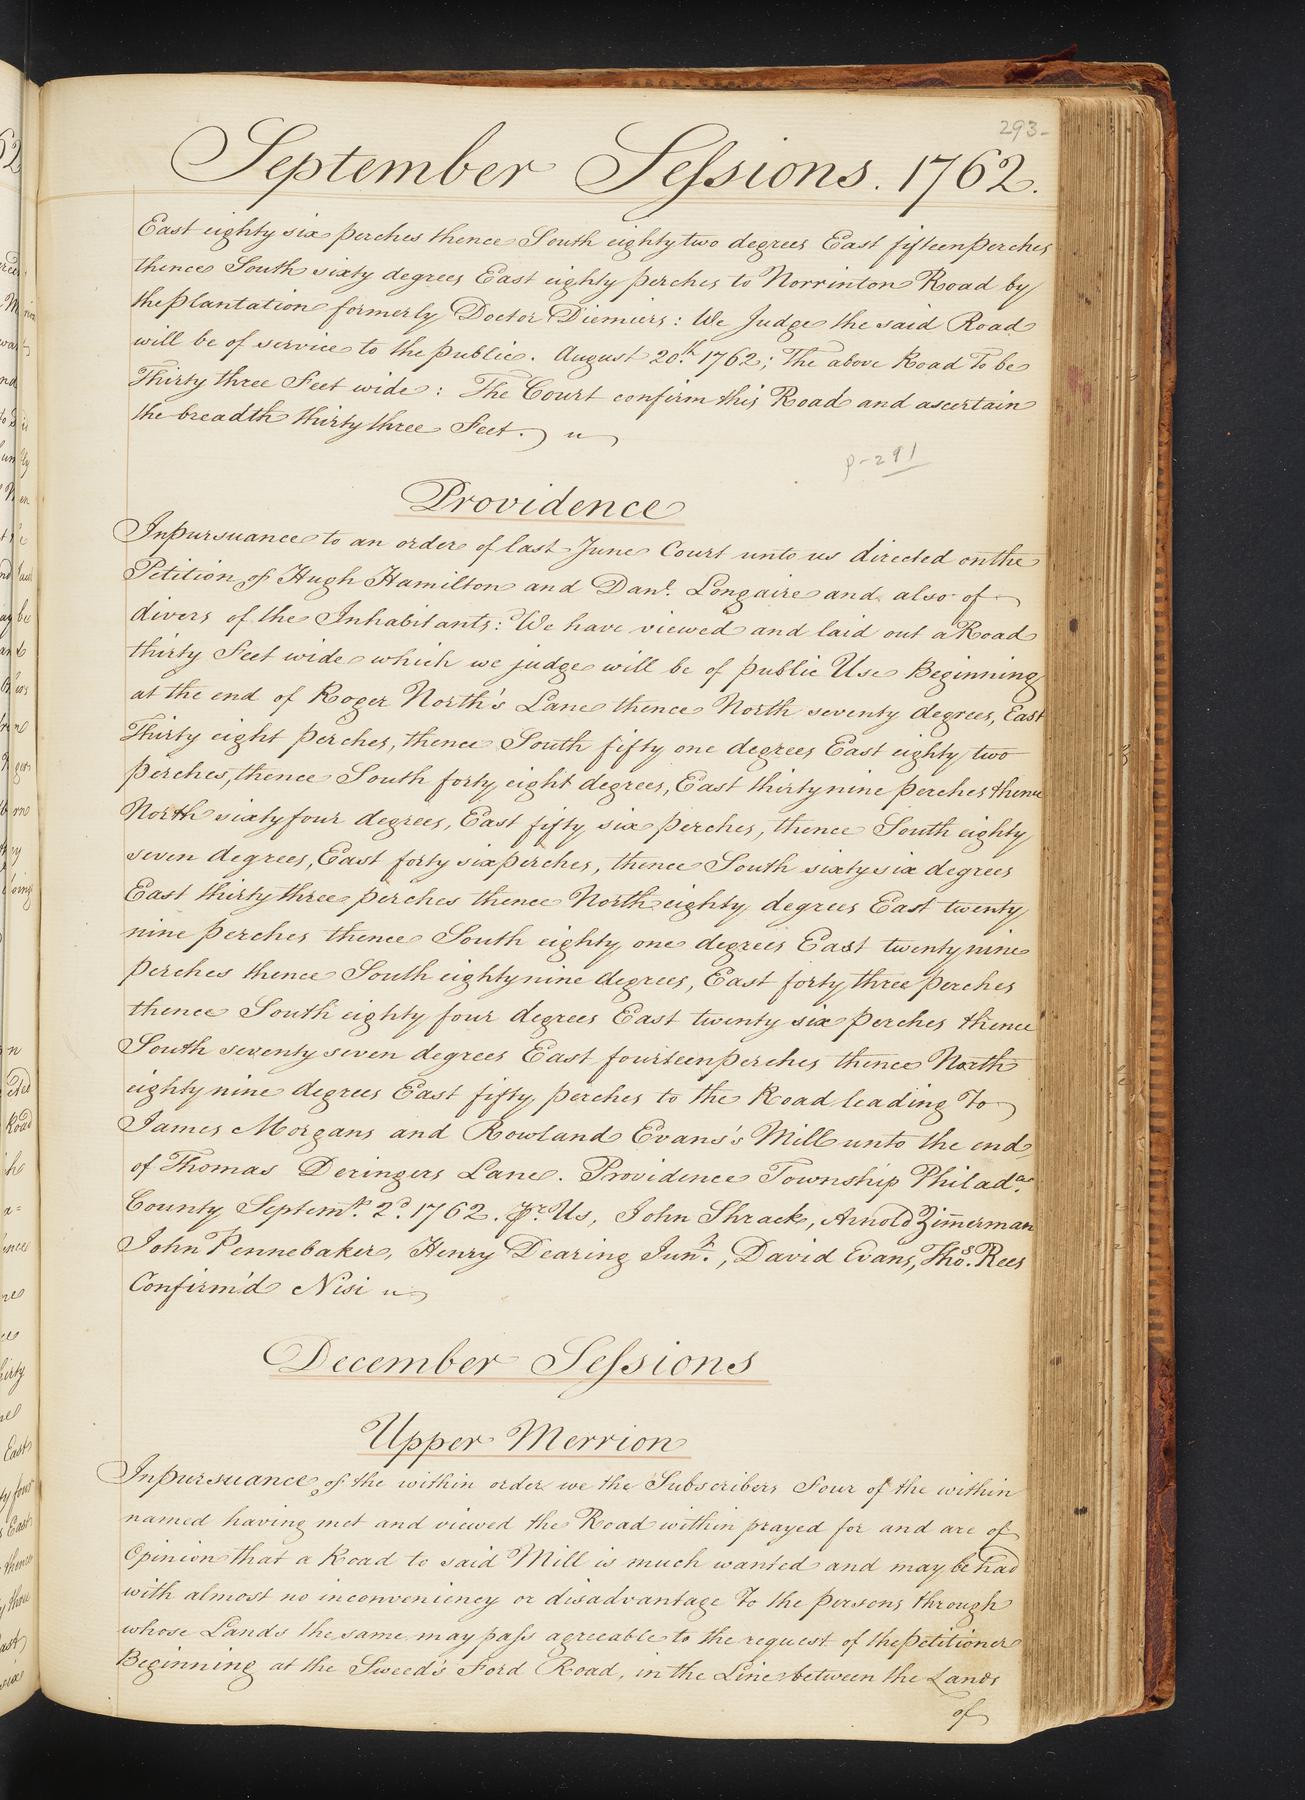 293-
September Sessions. 1762.
East eighty six perches thence South eighty two degrees East fifteen perches
thence South sixty degrees East eighty perches to Norrinton Road by
the plantation formerly Doctor Diemiers: We Judge the said Road
will be of service to the public. August 20th. 1762; The above Road To be
Thirty three Feet wide: The Court confirm this Road and ascertain
the breadth thirty three Feet.
p-291
Providence
Inpursuance to an order of last June Court unto us directed on the
Petition of Hugh Hamilton and Danl. Longaire and also of
divers of the Inhabitants: We have viewed and laid out a Road
thirty Feet wide which we judge will be of public Use Beginning
at the end of Roger North's Lane thence North seventy degrees, East
Thirty eight perches, thence South fifty one degrees East eighty two
perches, thence South forty eight degrees, East thirty nine perches thence
North sixty four degrees, East fifty six perches, thence South eighty
seven degrees, East forty six perches, thence South sixty six degrees
East thirty three perches thence North eighty degrees East twenty
nine perches thence South eighty one degrees East twenty nine
perches thence South eighty nine degrees, East forty three perches
thence South eighty four degrees East twenty six perches thence
South seventy seven degrees East fourteen perches thence North
eighty nine degrees East fifty perches to the Road leading To
James Morgans and Rowland Evans's Mill unto the end
of Thomas Deringers Lane. Providence Township Philada.
County Septemr. 2d. 1762. Pr. Us, John Shrack, Arnold Zimerman
John Pennebaker, Henry Dearing Junr., David Evans, Thos. Rees
Confirm'd Nisi
December Sessions
Upper Merrion
Inpursuance of the within order we the Subscribers Four of the within
named having met and viewed the Road within prayed for and are of
Opinion that a Road to said Mill is much wanted and may be had
with almost no inconveniency or disadvantage To the persons through
whose Lands the same may pass agreeable to the request of the petitioner
Beginning at the Sweed's Ford Road, in the Line between the Lands
of